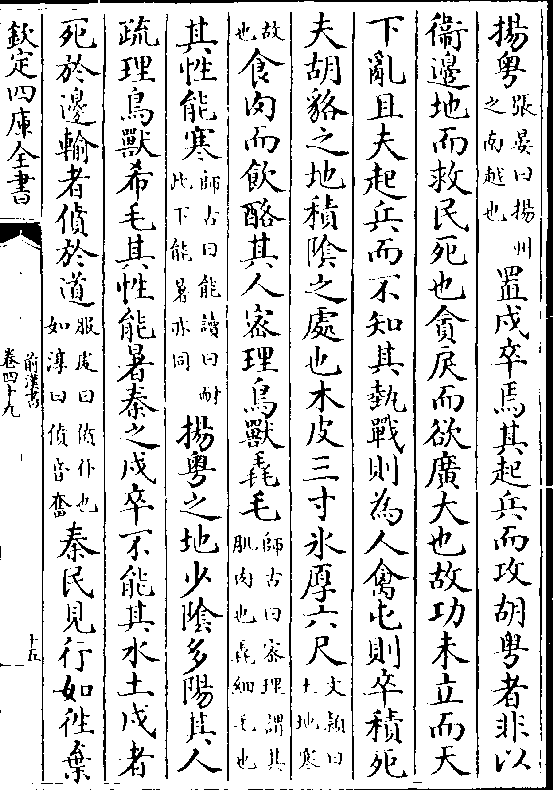 揚粤張晏曰揚州之南越也置戍卒焉其起兵而攻胡粤者非以
衞邊地而救民死也貪戾而欲廣大也故功未立而天
下亂且夫起兵而不知其埶戰則為人禽屯則卒積死
夫胡貉之地積陰之處也木皮三寸氷厚六尺文穎曰土地寒
故也食肉而飲酪其人宻理鳥獸毳毛師古曰宻理謂其肌肉也毳細毛也
其性能寒師古曰能讀曰耐此下能暑亦同揚粤之地少陰多陽其人
疏理鳥獸希毛其性能暑秦之戍卒不能其水土戍者
死於邊輸者僨於道服䖍曰僨仆也如淳曰僨音奮秦民見行如徃棄
欽定四庫全書
前漢書
卷四十九
十五